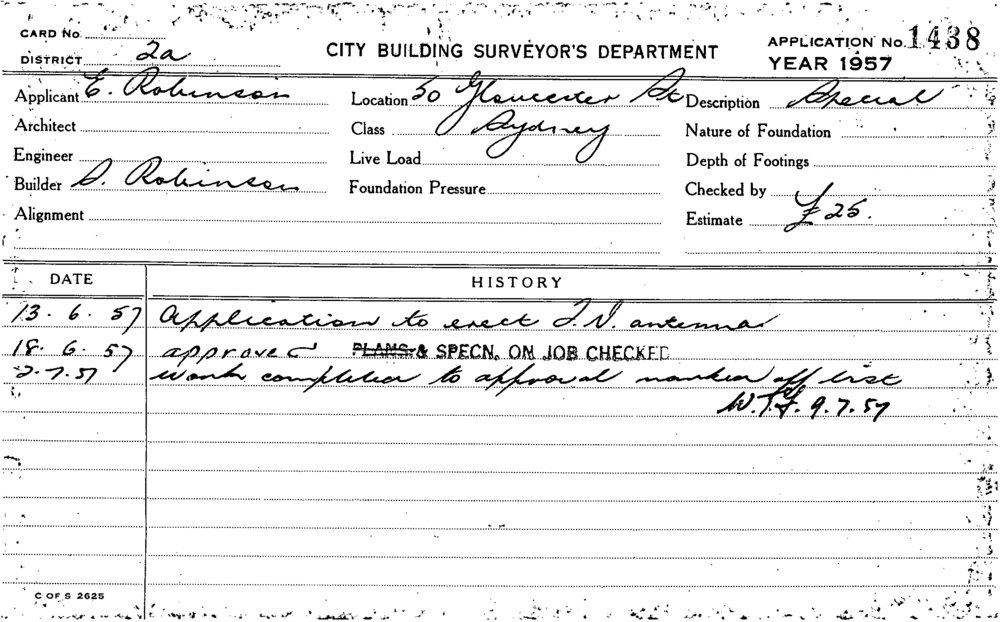 CARD No.
DISTRICT 2a
CITY BUILDING SURVEYOR'S DEPARTMENT
APPLICATION No. 1438
YEAR 1957
Applicant E. Robinson
Location 50 Gloucester St
Description Special
Architect
Class Sydney
Nature of Foundation
Engineer
Live Load
Depth of Footings
Builder S. Robinson
Foundation Pressure
Checked by
Alignment
Estimate £25.
DATE HISTORY
13.6.57 Application to erect T.V. antenna
18.6.57 approved PLANS & SPECN. ON JOB CHECKED
2.7.57 Work completed to approval marked off list
W.T.F. 9.7.57
C OF S 2625